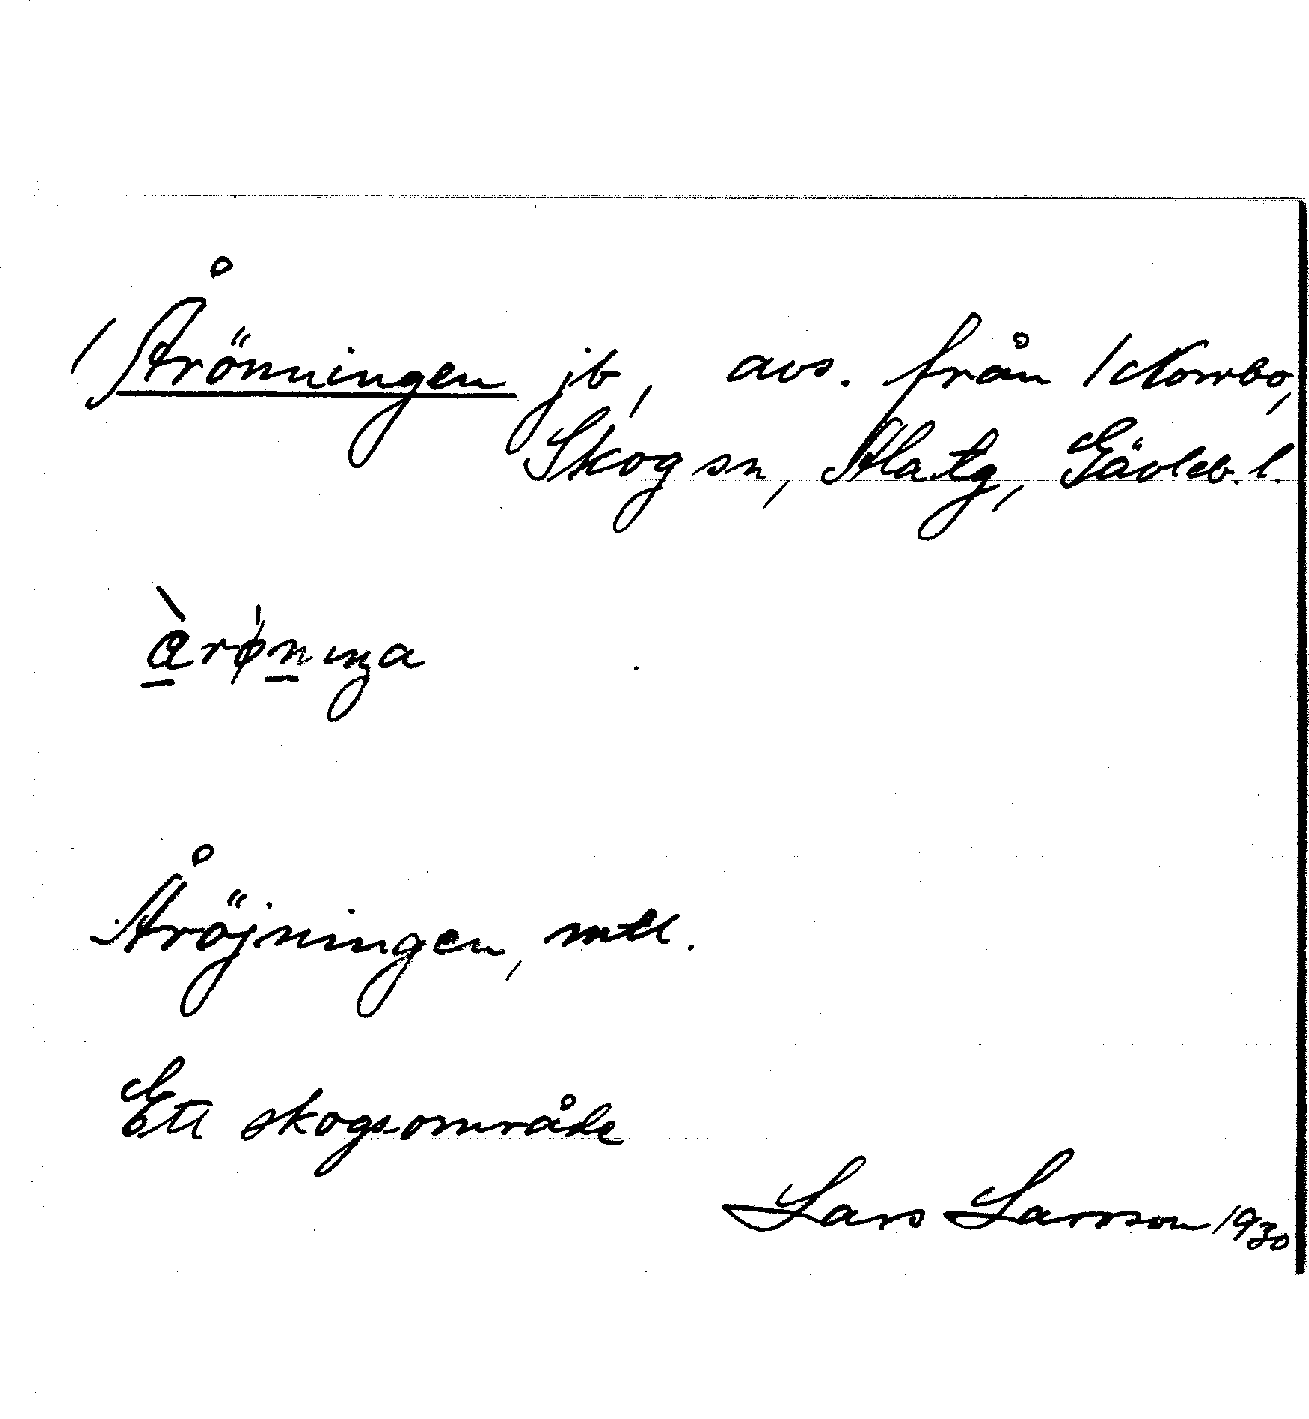 1 Årönningen jb, avs. från 1 Norrbo,
Skog sn, Ala tg, Gävleb. l.
Åröjningen, mtl.
Ett skogsområde
Lars Larsson 1930